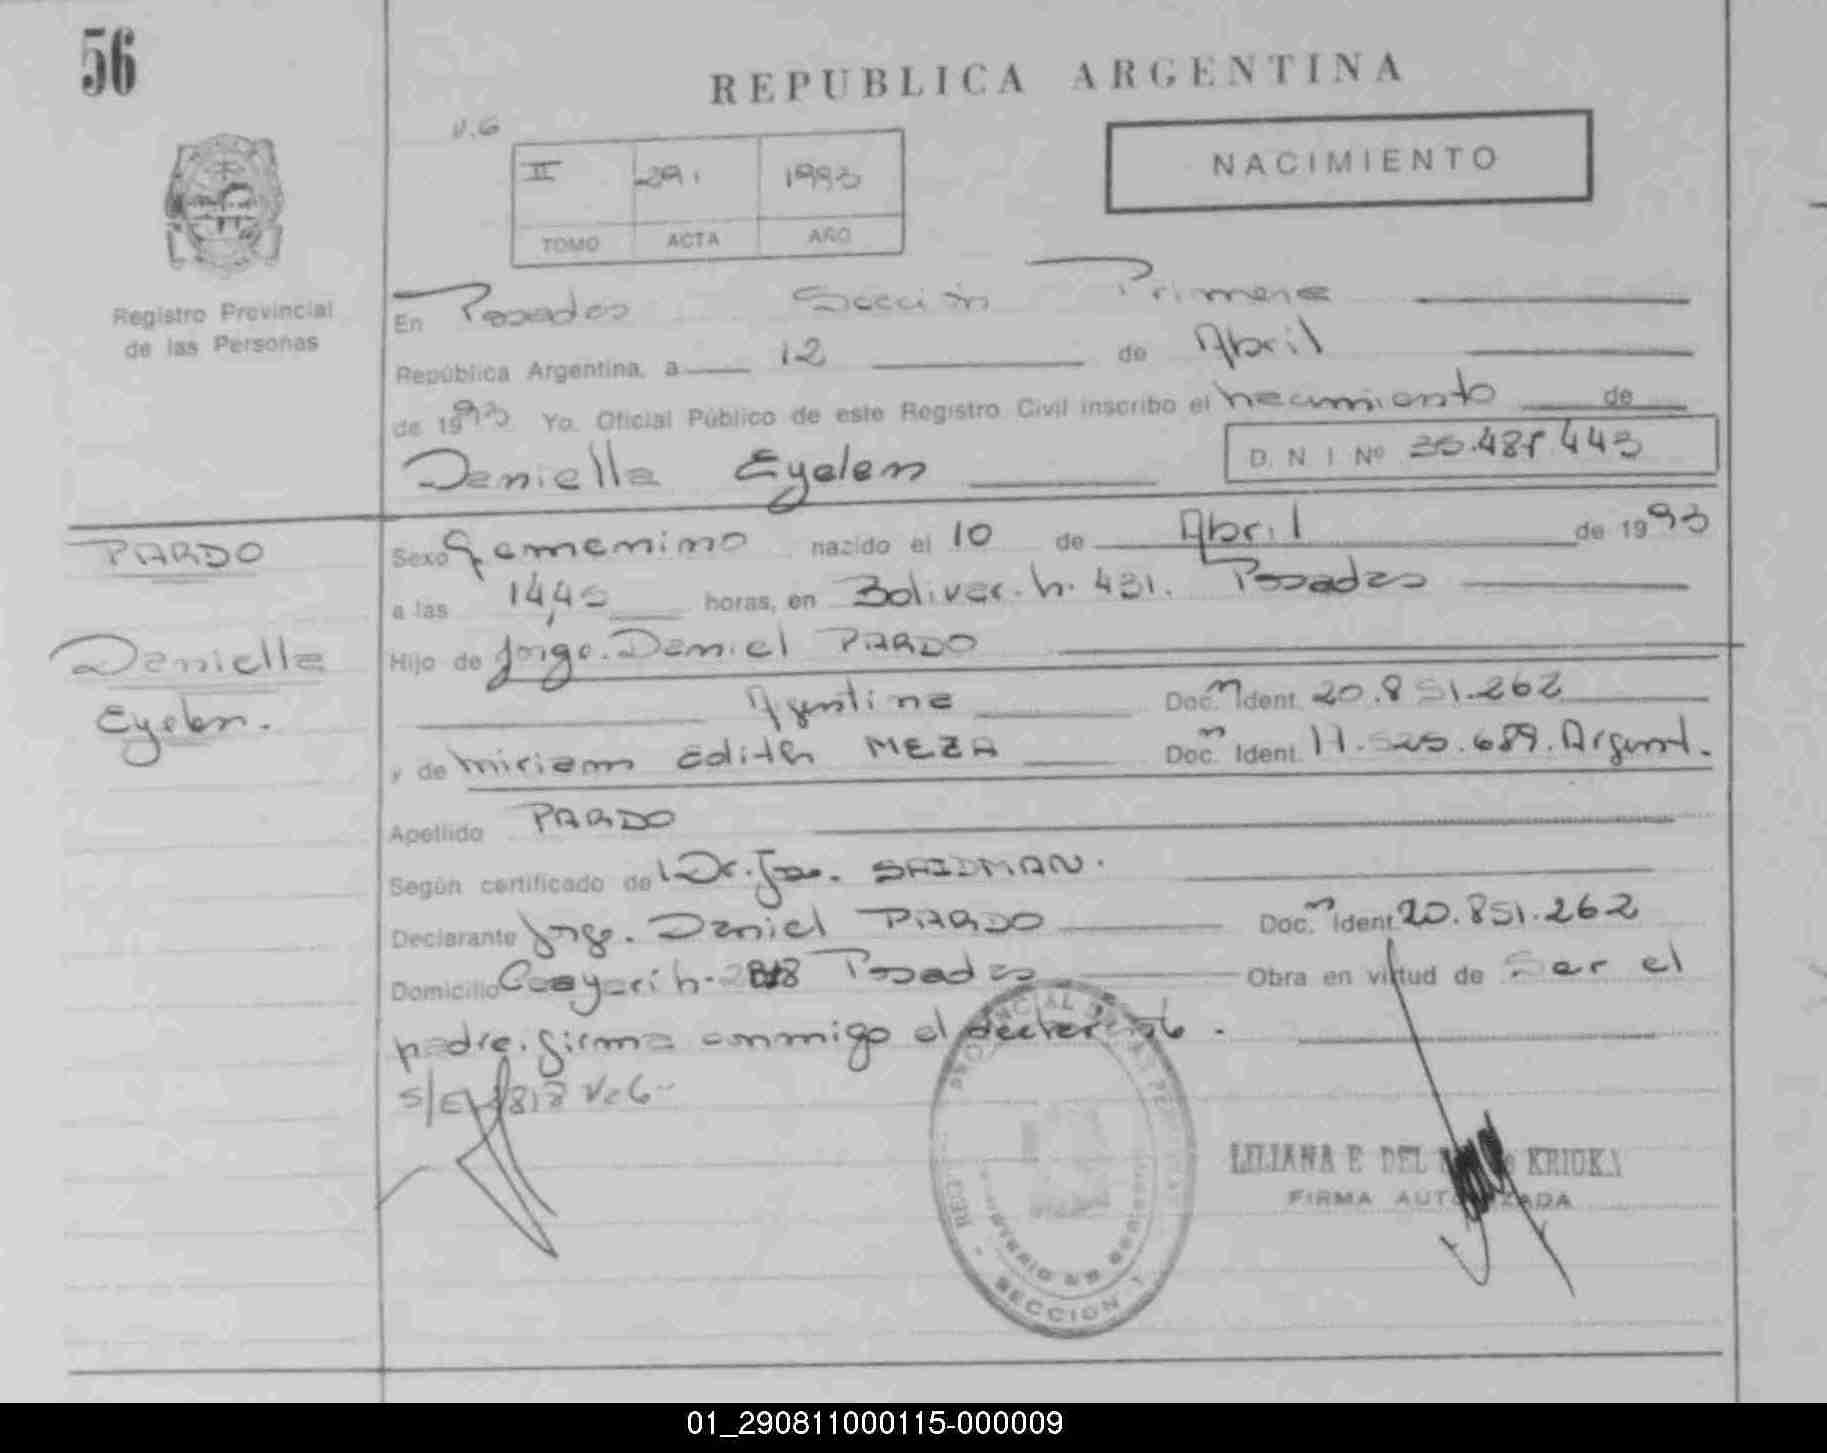 56
REPUBLICA ARGENTINA
V.G
NACIMIENTO
II 291 1993
TOMO ACTA AÑO
Registro Provincial
de las Personas
En Posadas Sección Primera
República Argentina, a 12 de Abril
de 1993 Yo. Oficial Público de este Registro Civil inscribo el nacimiento de
Daniella Eyelen D. N. I Nº
PARDO
Sexo femenino nacido el 10 de Abril de 1993
a las 14,45 horas, en Bolivar. n. 431. Posadas
Daniella
Eyelen.
Hijo de Jorge. Daniel PARDO
Argentina Doc. n Ident. 20.851.262
y de Miriam Edith MEZA Doc. n Ident. Argent.
Apellido PARDO
Según certificado de Dr. SAIDMAN.
Declarante Jorge. Daniel PARDO Doc. n Ident 20.851.262
Domicilio n. Posadas Obra en virtud de Ser el
padre. firma conmigo el declarante.
S/E
PROVINCIAL DE LAS PERSONAS
MINISTERIO DE GOBIERNO
SECCION 1
LILIANA E DEL KRIUKA
FIRMA AUTORIZADA
01_290811000115-000009